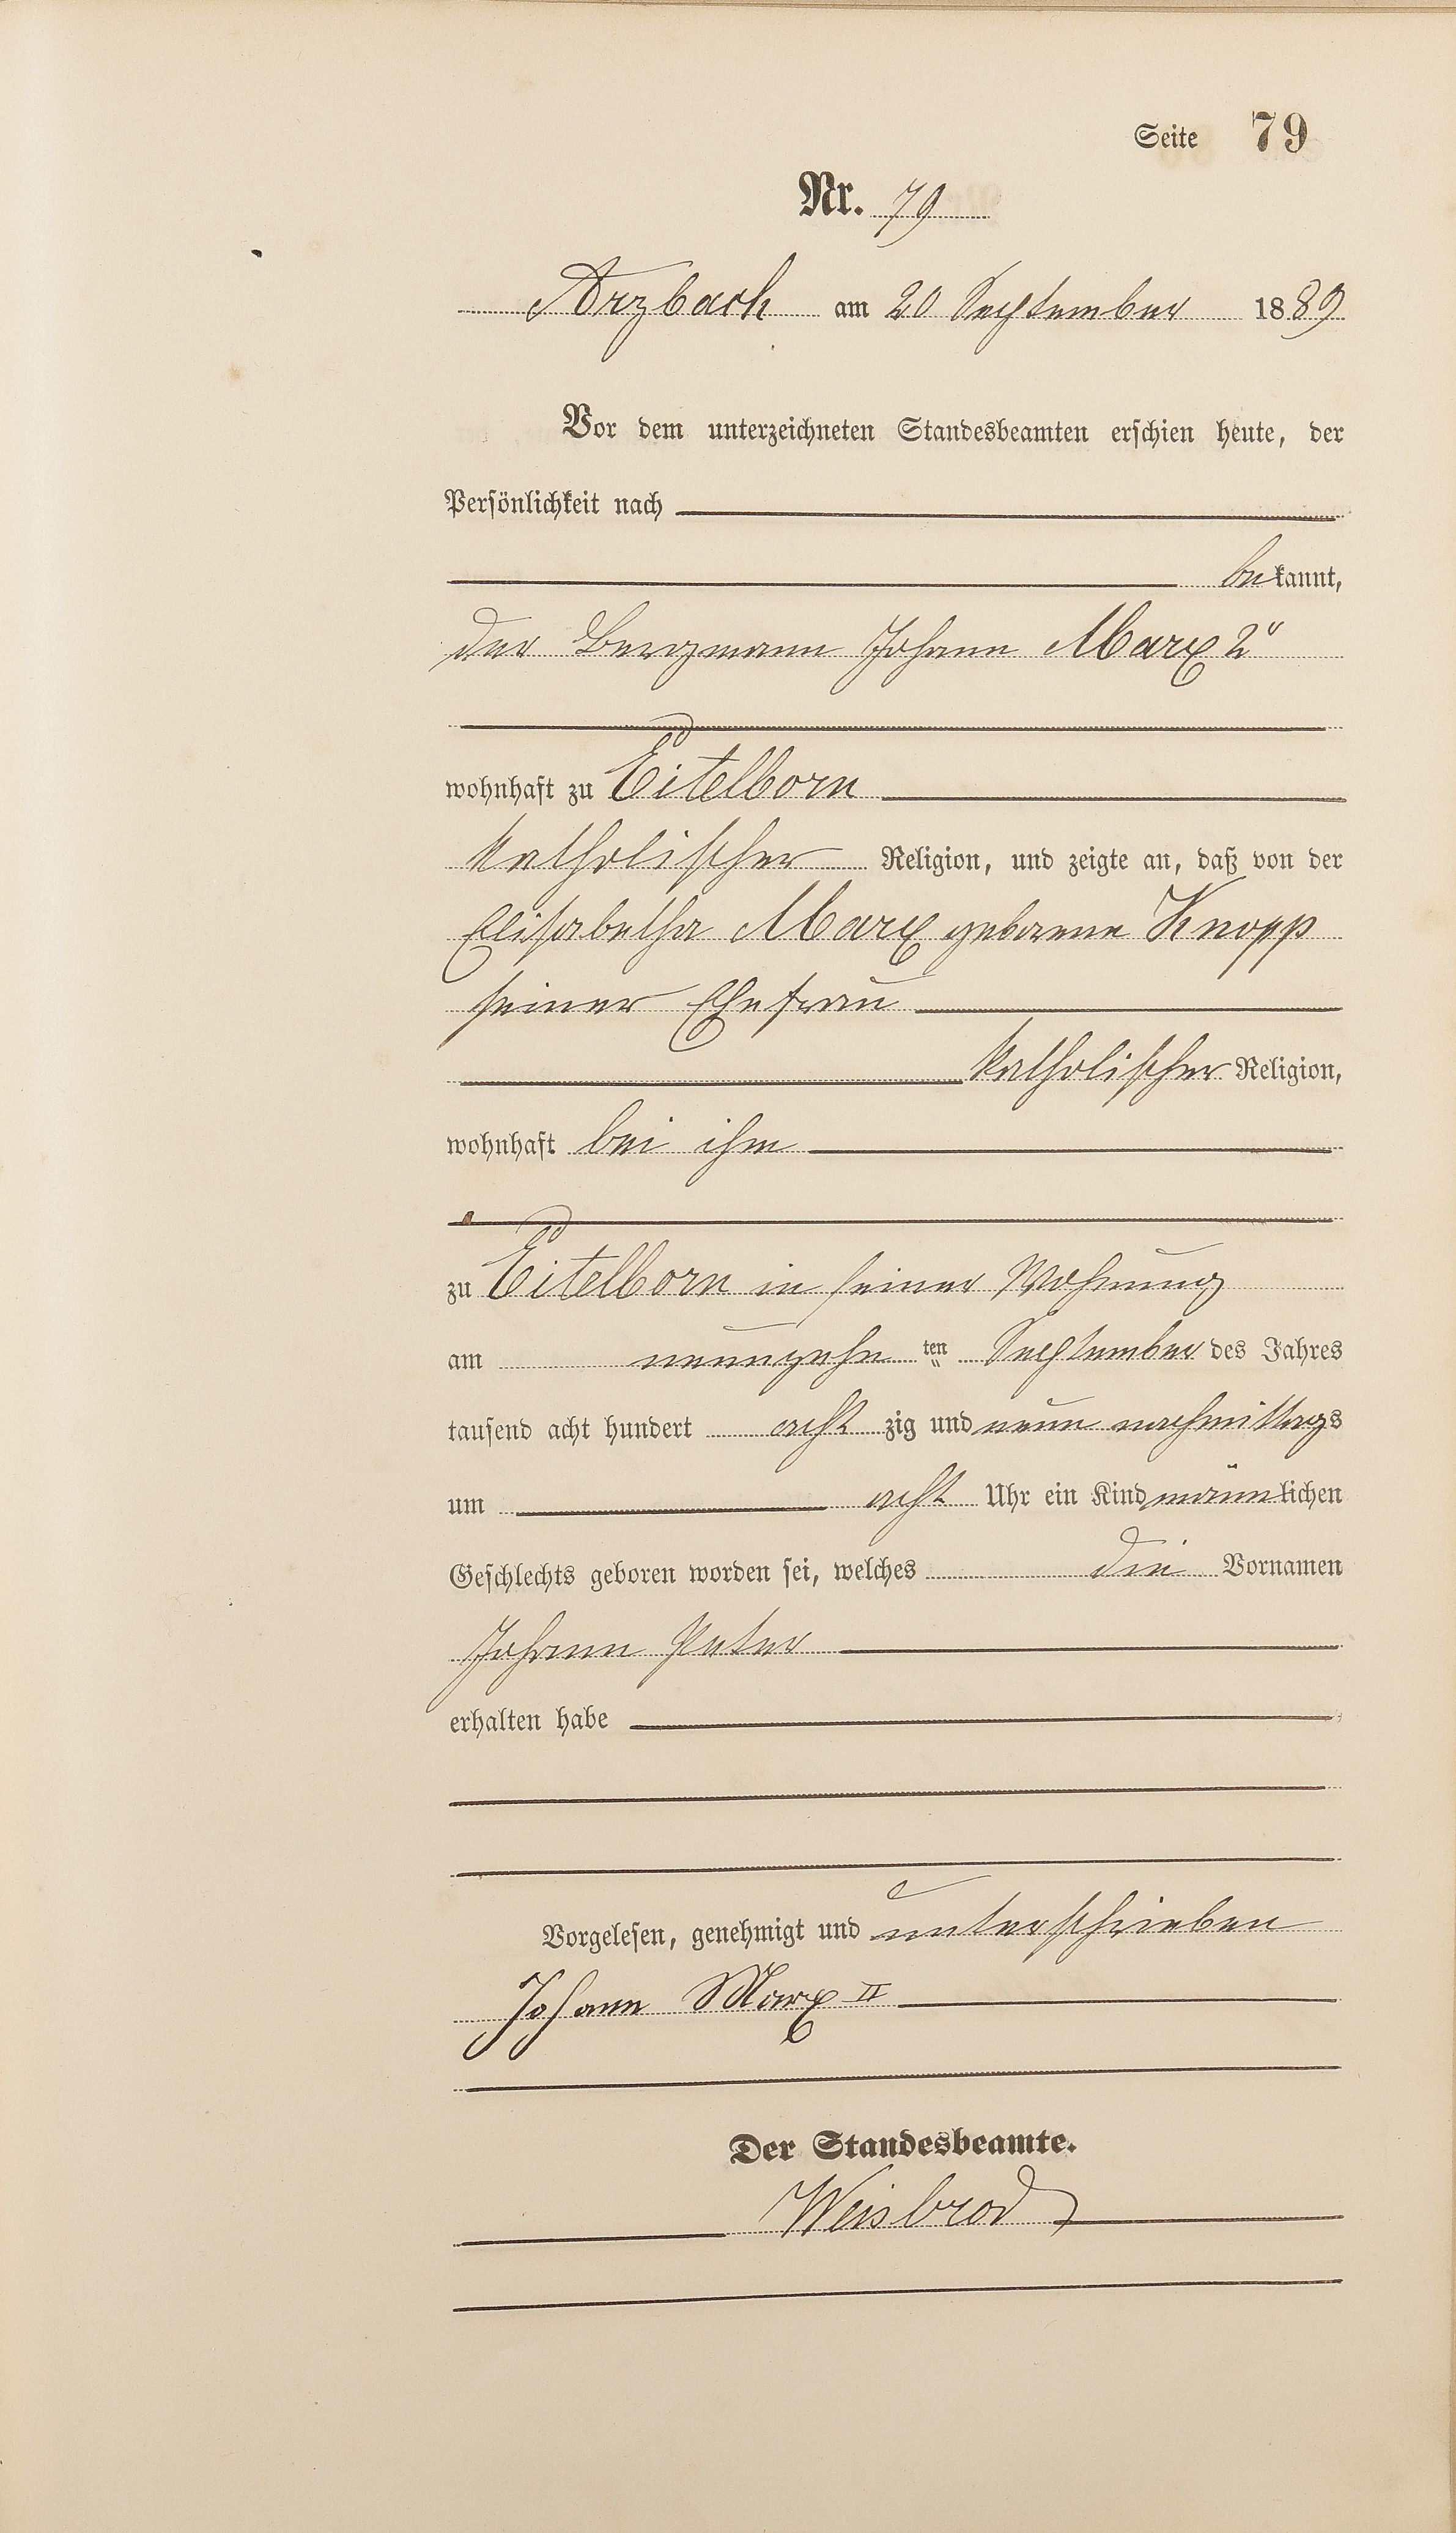 Seite 79
Nr. 79
Arzbach am 20 September 1889
Vor dem unterzeichneten Standesbeamten erschien heute, der
Persönlichkeit nach
bekannt,
der Bergmann Johann Marx 2"
wohnhaft zu Eitelborn
katholischer Religion, und zeigte an, daß von der
Elisabetha Marx geborene Knopp
seiner Ehefrau
katholischer Religion,
wohnhaft bei ihm
zu Eitelborn in seiner Wohnung
am neunzehn ten September des Jahres
tausend acht hundert acht zig und neun nachmittags
um acht Uhr ein Kind männlichen
Geschlechts geboren worden sei, welches die Vornamen
Johann Peter
erhalten habe
Vorgelesen, genehmigt und unterschrieben
Johann Marx II
Der Standesbeamte.
Weisbrod